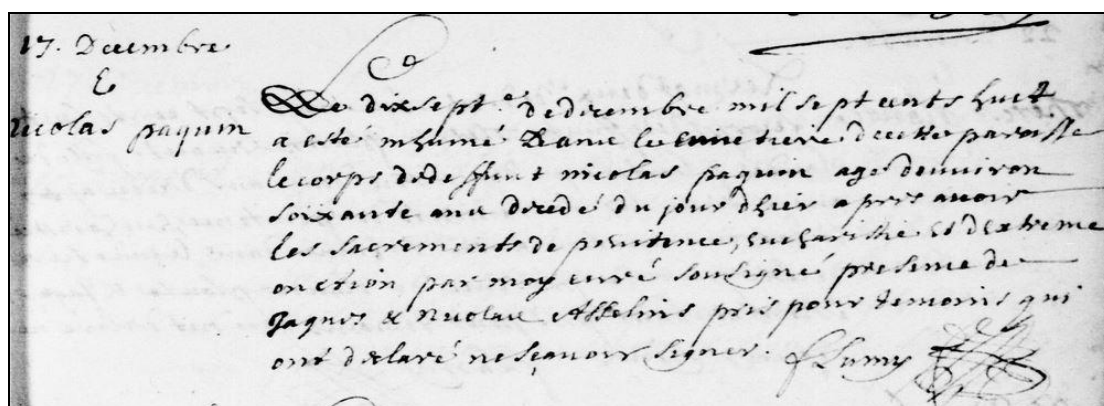 17. Decembre
Nicolas paquin
Le dix sept.e de decembre mil sept cents huict
a esté inhumé dans le cimetiere de cette paroisse
le corps de deffunt nicolas paquin agé denviron
soixante ans decedé du jour dhier apres avoir
les sacrements de penitence, eucharistie et dextreme
onction par moy curé sousigné presence de
Jaques & Nicolas Asselins pris pour temoins qui
ont declaré ne sçavoir signer. f Lamy